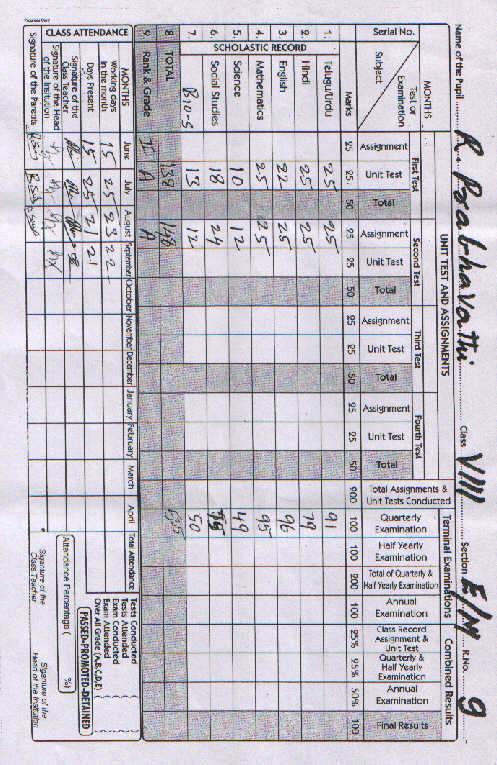 Name of the Pupil R. Prabhavathi Class VIII Section E/M R.No. 9
Serial No.
Subject
MONTHS
Test or Examination
Marks
UNIT TEST AND ASSIGNMENTS
First Test
Second Test
Third Test
Fourth Test
Assignment 25
Unit Test 25
Total 50
Assignment 25
Unit Test 25
Total 50
Assignment 25
Unit Test 25
Total 50
Assignment 25
Unit Test 25
Total 50
Total Assignments & Unit Tests Conducted 900
Terminal Examinations
Quarterly Examination 100
Half Yearly Examination 100
Total of Quarterly & Half Yearly Examination 200
Annual Examination 100
Combined Results
Class Record Assignment & Unit Test 25%
Quarterly & Half Yearly Examination 25%
Annual Examination 50%
Final Results 100
SCHOLASTIC RECORD
1. Telugu/Urdu 25 25 91
2. Hindi 25 25 79
3. English 22 25 96
4. Mathematics 25 25 95
5. Science 10 12 49
6. Social Studies 18 24
7. Bio-S 13 12 50
8. TOTAL 138 148
9. Rank & Grade II A A
CLASS ATTENDANCE
MONTHS June July August September October November December January February March April Total Attendance
Working days in the month 15 25 23 22
Days Present 15 25 21 21
Signature of the Class Teacher
Signature of the Head of the Institution
Signature of the Parents
Tests Conducted
Tests Attended
Exam Conducted
Exam Attended
Over All Grade (A,B,C,D,E)
PASSED-PROMOTED-DETAINED
Attendance Percentage ( %)
Signature of the Class Teacher
Signature of the Head of the Institution